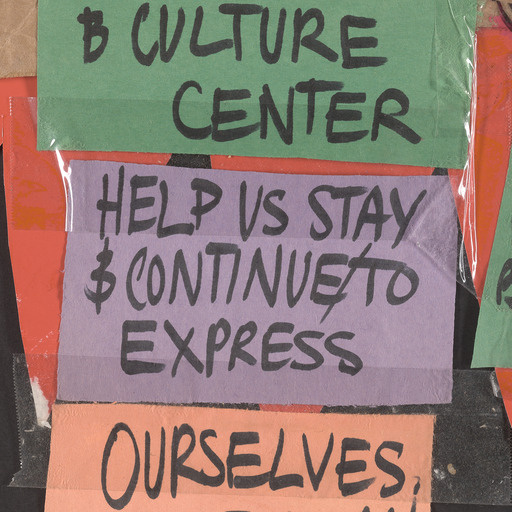 & CULTURE
CENTER
HELP US STAY
& CONTINUE TO
EXPRESS
OURSELVES.